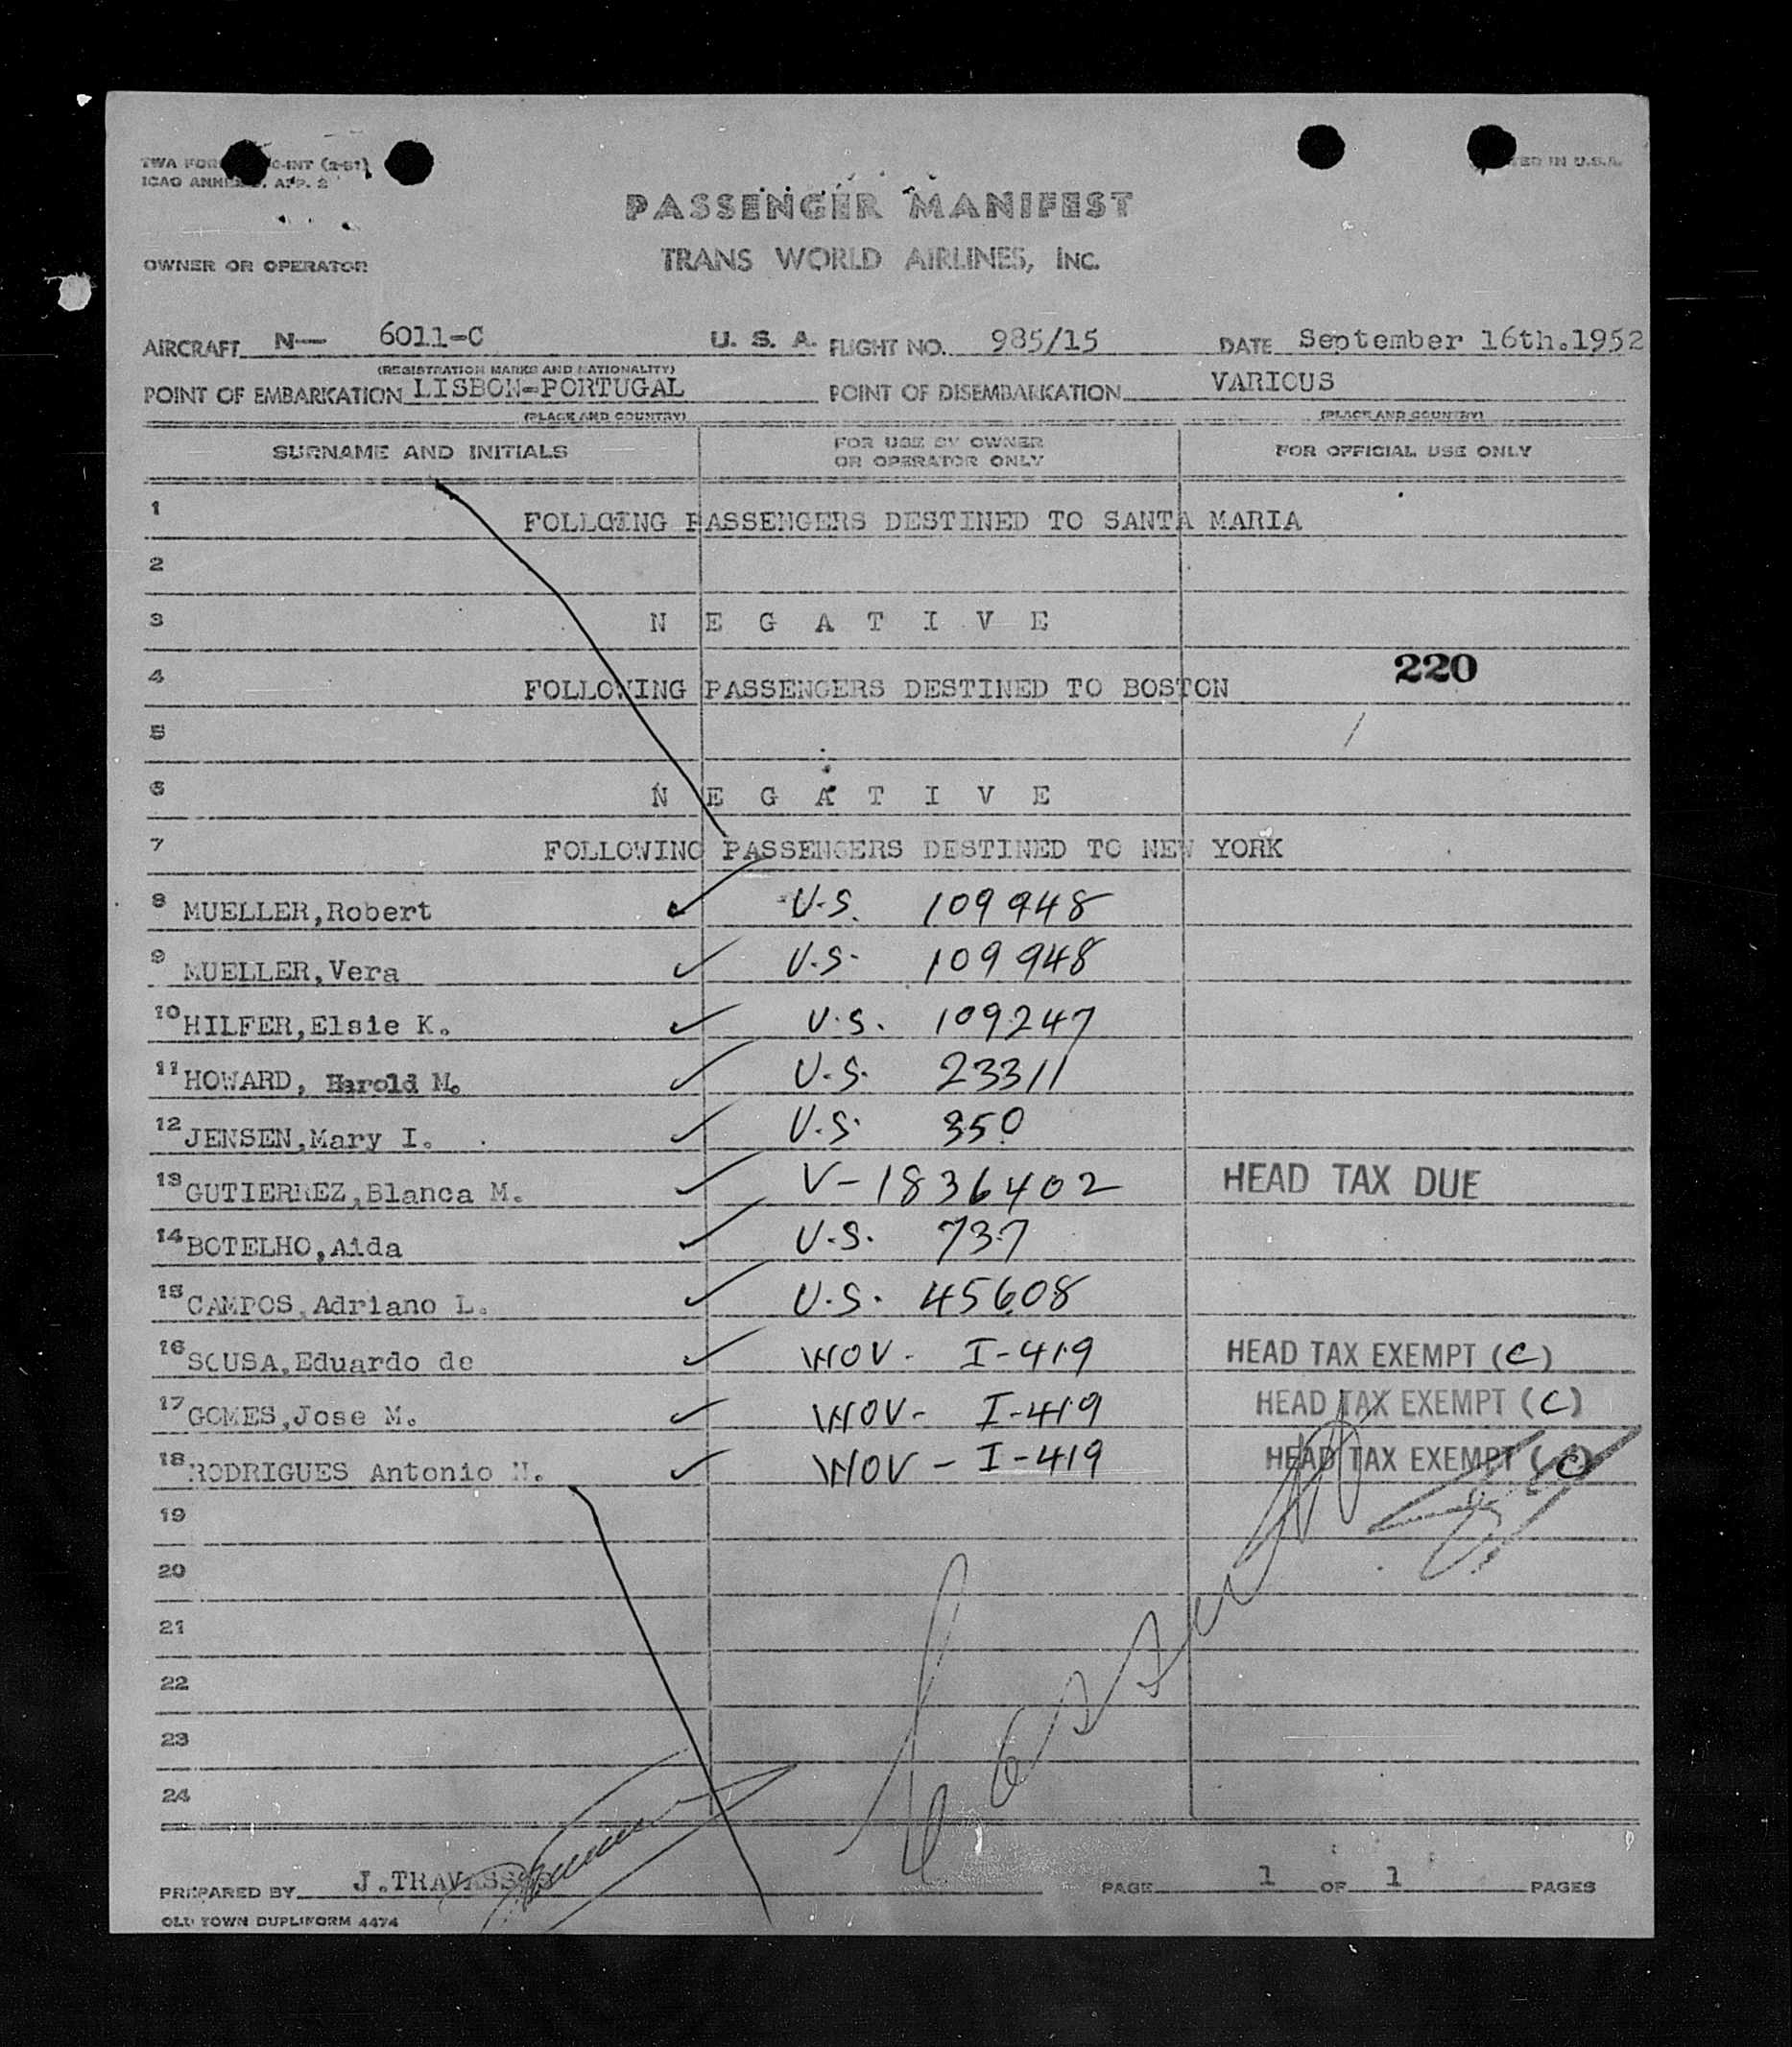 ICAO ANNEX 9. APP. 2
PASSENGER MANIFEST
OWNER OR OPERATOR TRANS WORLD AIRLINES, INC.
AIRCRAFT N— 6011-C U. S. A. FLIGHT NO. 985/15 DATE September 16th.1952
(REGISTRATION MARKS AND NATIONALITY)
POINT OF EMBARKATION LISBON-PORTUGAL POINT OF DISEMBARKATION VARIOUS
(PLACE AND COUNTRY) (PLACE AND COUNTRY)
SURNAME AND INITIALS FOR USE BY OWNER OR OPERATOR ONLY FOR OFFICIAL USE ONLY
1 PASSENGERS DESTINED TO SANTA MARIA
2
3 N E G A T I V E
220
4 FOLLOWING PASSENGERS DESTINED TO BOSTON
5
6 N E G A T I V E
7 FOLLOWING PASSENGERS DESTINED TO NEW YORK
8 MUELLER,Robert ✓ U.S. 109948
9 MUELLER,Vera ✓ U.S. 109948
10 HILFER,Elsie K. ✓ U.S. 109247
11 HOWARD, Harold M. ✓ U.S. 23311
12 JENSEN,Mary I. ✓ U.S. 350
13 GUTIERREZ,Blanca M. ✓ V-1836402 HEAD TAX DUE
14 BOTELHO,Aida ✓ U.S. 737
15 CAMPOS,Adriano L. ✓ U.S. 45608
16 SOUSA,Eduardo de ✓ I-419 HEAD TAX EXEMPT (C)
17 GOMES,Jose M. ✓ I-419 HEAD TAX EXEMPT (C)
18 RODRIGUES Antonio N. ✓ I-419 HEAD TAX EXEMPT (C)
19
20
21
22
23
24
PREPARED BY J.TRAVASSOS PAGE 1 OF 1 PAGES
OLD TOWN DUPLIFORM 4474